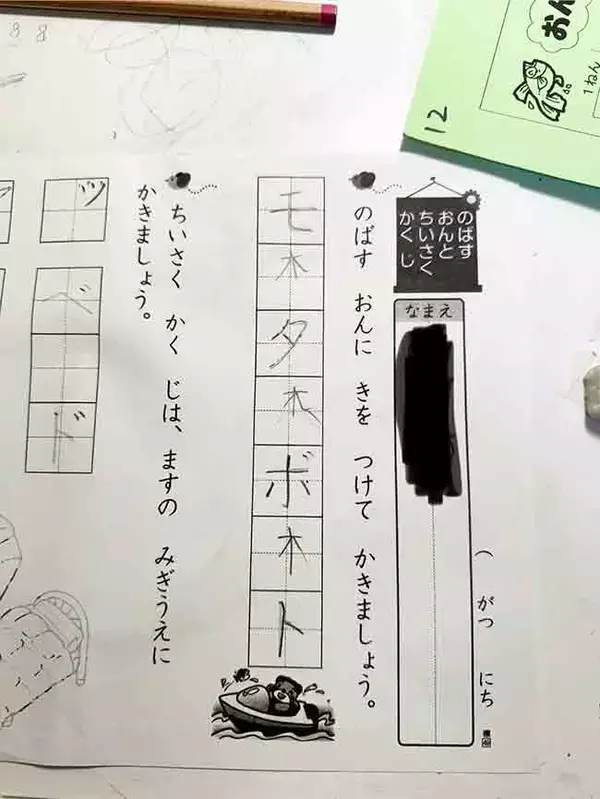 おん
1ねん
12
のばす
おんと
ちいさく
かく じ
なまえ
( がつ にち
のばす おんに きを つけて かきましょう。
モ木タ木ボ木ト
ちいさく かく じは、ますの みぎうえに
かきましょう。
ッ
ベ ド